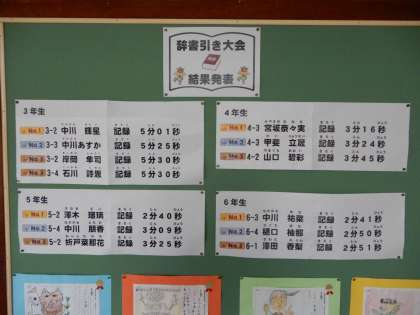 辞書引き大会
結果発表
3年生
No.1 3-2 中川 輝星 記録 5分01秒
No.2 3-3 中川あすか 記録 5分25秒
No.3 3-2 岸岡 隼司 記録 5分30秒
No.3 3-4 石川 詩恩 記録 5分30秒
4年生
No.1 4-3 宮坂奈々実 記録 3分16秒
No.2 4-3 甲斐 立晟 記録 3分24秒
No.3 4-2 山口 碧彩 記録 3分45秒
5年生
No.1 5-2 澤木 瑠璃 記録 2分40秒
No.2 5-4 中川 朋香 記録 3分09秒
No.3 5-2 折戸菜那花 記録 3分25秒
6年生
No.1 6-3 中川 祐菜 記録 2分41秒
No.2 6-4 樋口 柚那 記録 2分50秒
No.3 6-1 澤田 香梨 記録 2分51秒